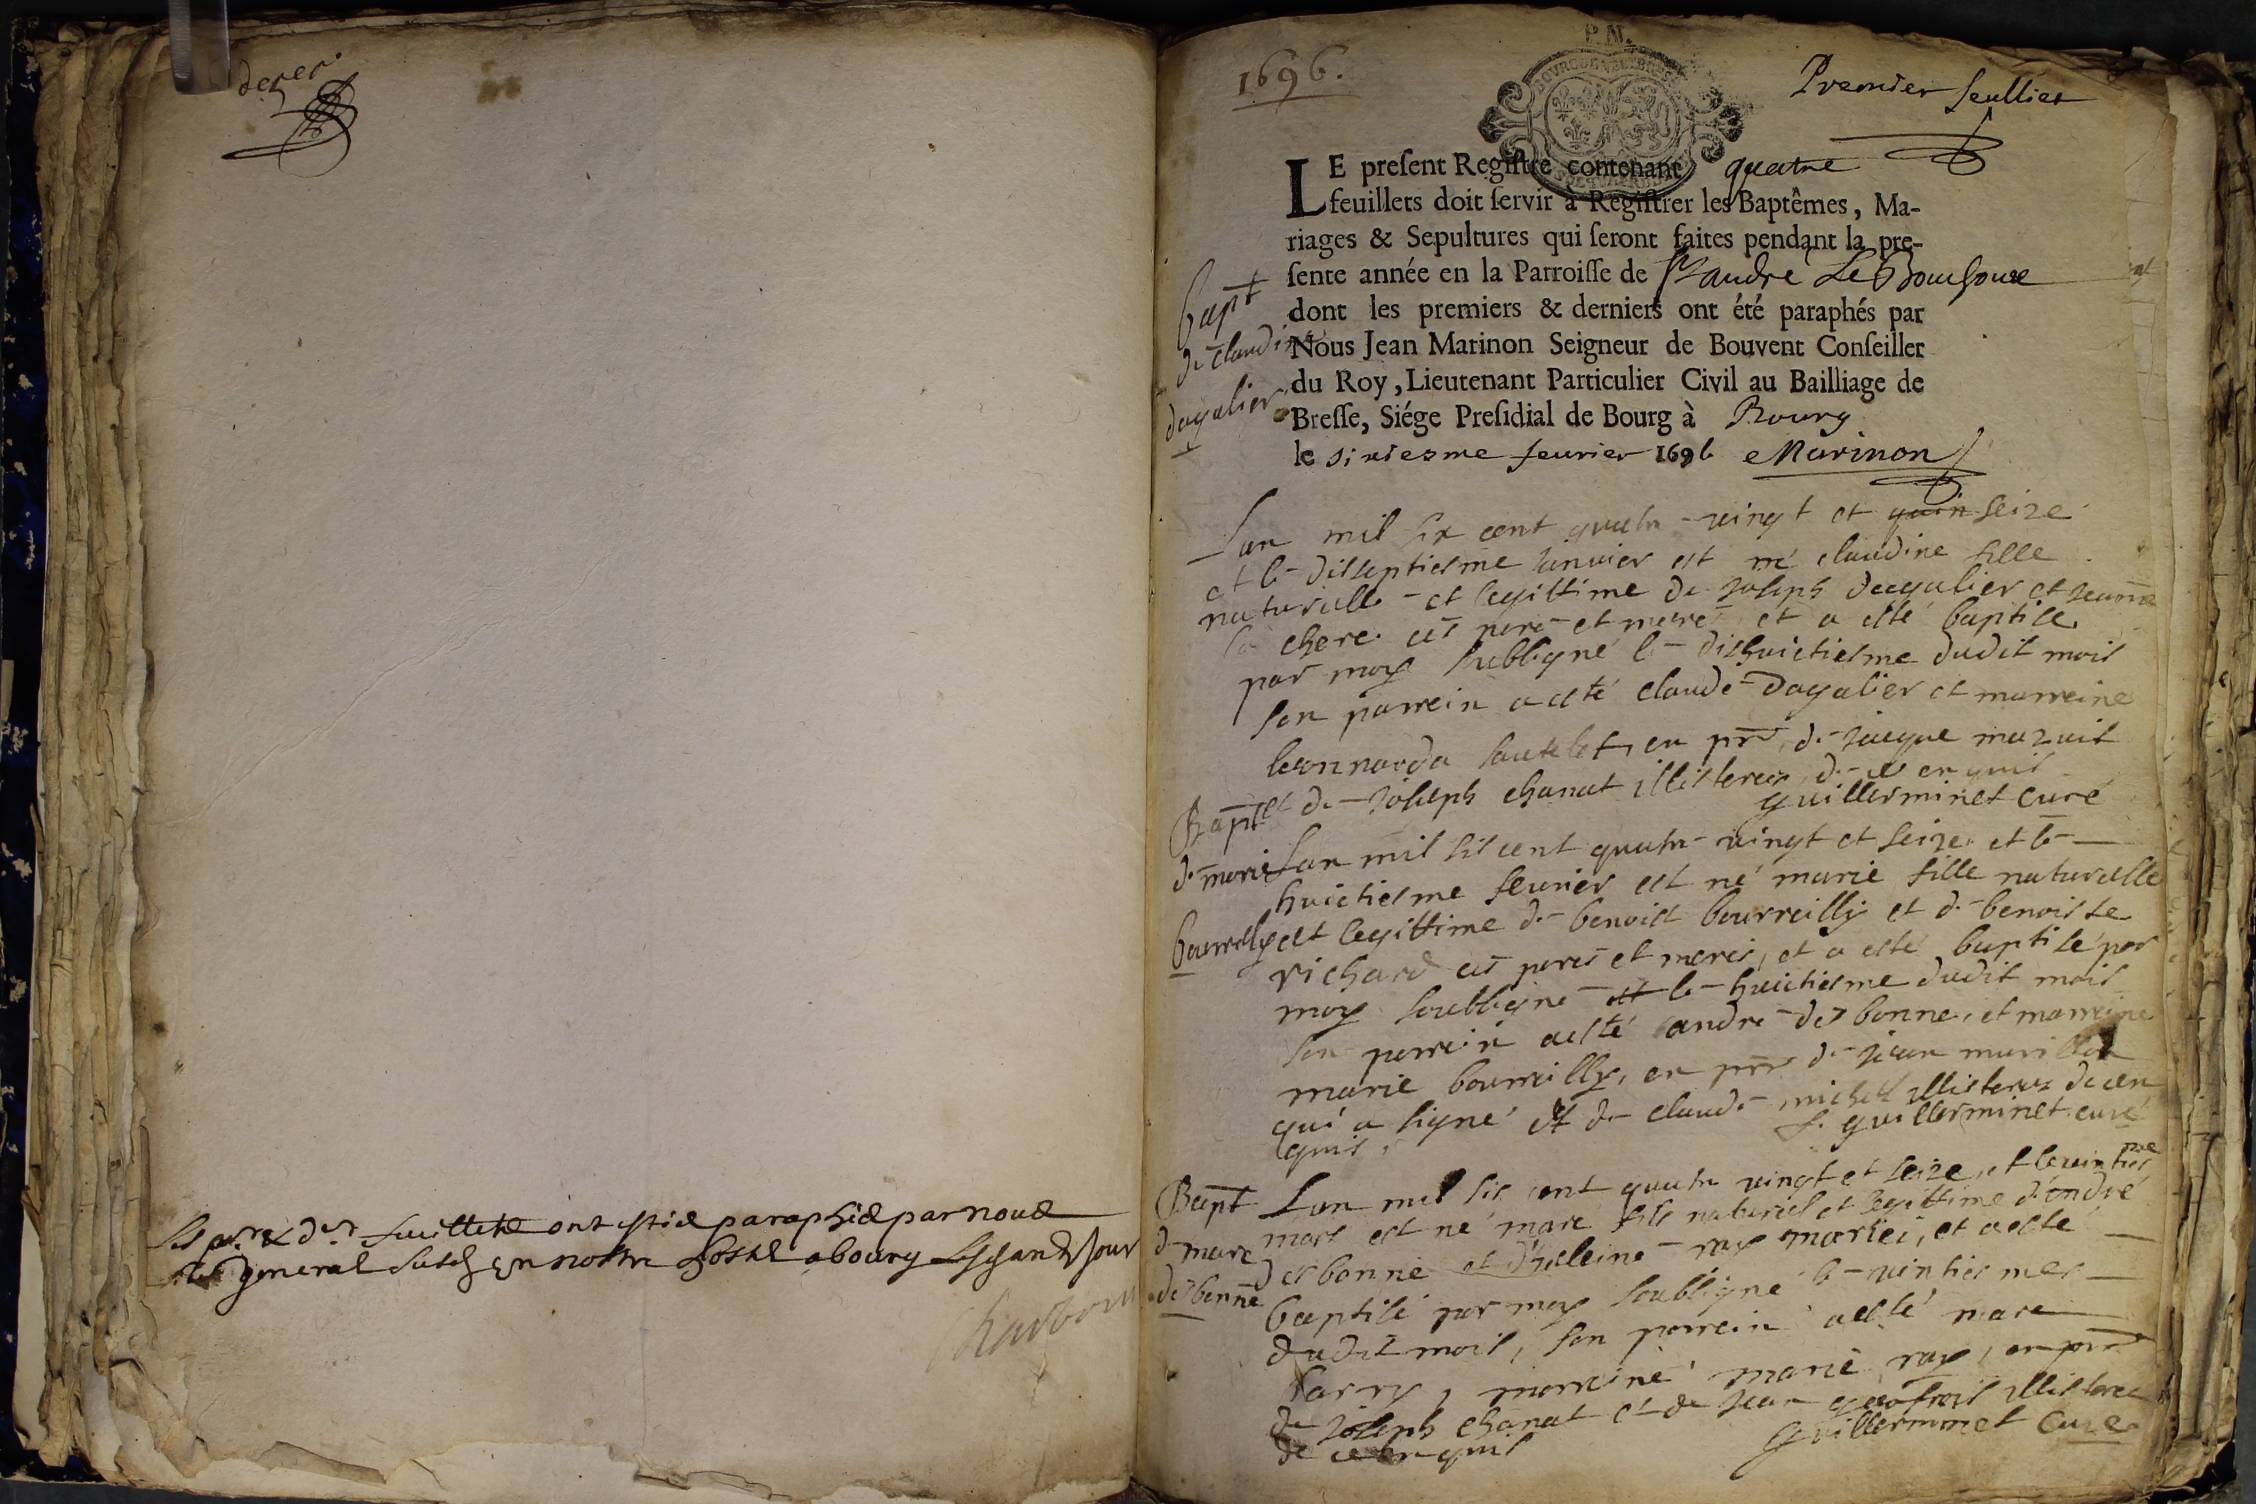 der er
les pr. & der. feuilletz ont estié paraphié par noue
general susd en nostre hostel a bourg lesd an & jour
Charbon
1696.
Premier feuillet
LE preſent Regiſtre contenant quatre
feuillets doit ſervir à Regiſtrer les Baptêmes, Ma-
riages & Sepultures qui ſeront faites pendant la pre-
ſente année en la Parroiſſe de St andre Le Bouchoux
dont les premiers & derniers ont été paraphés par
Nous Jean Marinon Seigneur de Bouvent Conſeiller
du Roy, Lieutenant Particulier Civil au Bailliage de
Breſſe, Siége Preſidial de Bourg à Bourg
le sixiesme feurier 1696 Marinon
bapt
de claudine
dagalier
Lan mil six cent quatre vingt et quin seize
et le disseptiesme janvier est né claudine fille
naturielle et legittime de joseph dagalier et jeanne
la chere ces pere et mere et a esté baptise
par moy soubsigné le dishuictiesme dudit mois
son parrein a esté claude dagalier et marreine
leonnarda sautelet, en pnce de jacque mazuit
et de joseph chanat illisteres de ce enquis
guillerminet curé
Bapt
de marie
bourrelly
Lan mil sis cent quatre vingt et seize et le
huictiesme feurier est né marie fille naturelle
et legittime de benoist bourreilly et de benoiste
richard ces peres et meres, et a esté baptisé par
moy soubsigné et le huictiesme dudit mois
son parrein a esté andre desbonne, et marreine
marie bourreilly, en pnce de jean murillon
qui a signé et de claude michel illisteres de cen
quis, guillerminet curé
Bapt
de marc
desbonne
Lan mil sis cent quatre vingt et seize, et le vintiesme
mars est né marc fils naturiel et legittime d'andré
desbonne et d'heleine ray mariéi, et a esté
baptisé par moy soubsigné le vintiesmes
dudit mois, son parrein a esté marc
, marreine marie ray, en pnce
de joseph chanat et de jean geofrois illisteres
de ce enquis guillerminet Curé